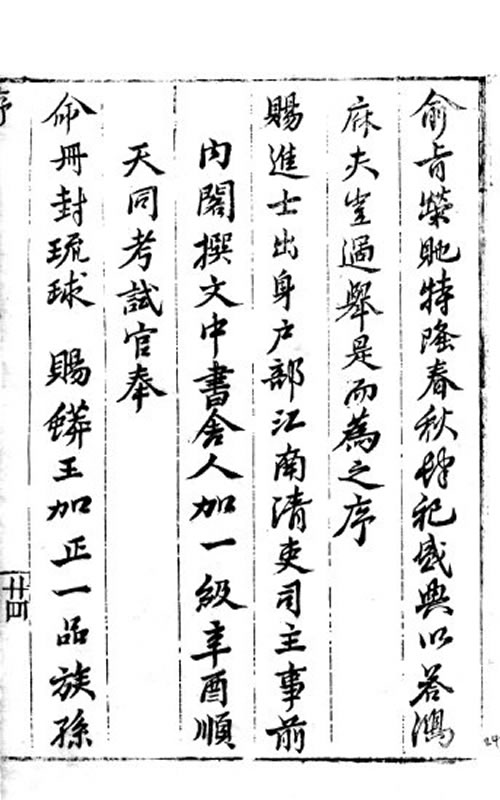 俞旨榮貤特隆春秋肆祀盛典以答鴻
庥夫豈過舉是而為之序
賜進士出身户部江南清吏司主事前
内閣撰文中書舍人加一級辛酉順
天同考試官奉
命冊封琉球 賜蟒王加正一品族孫
序
廿四
24